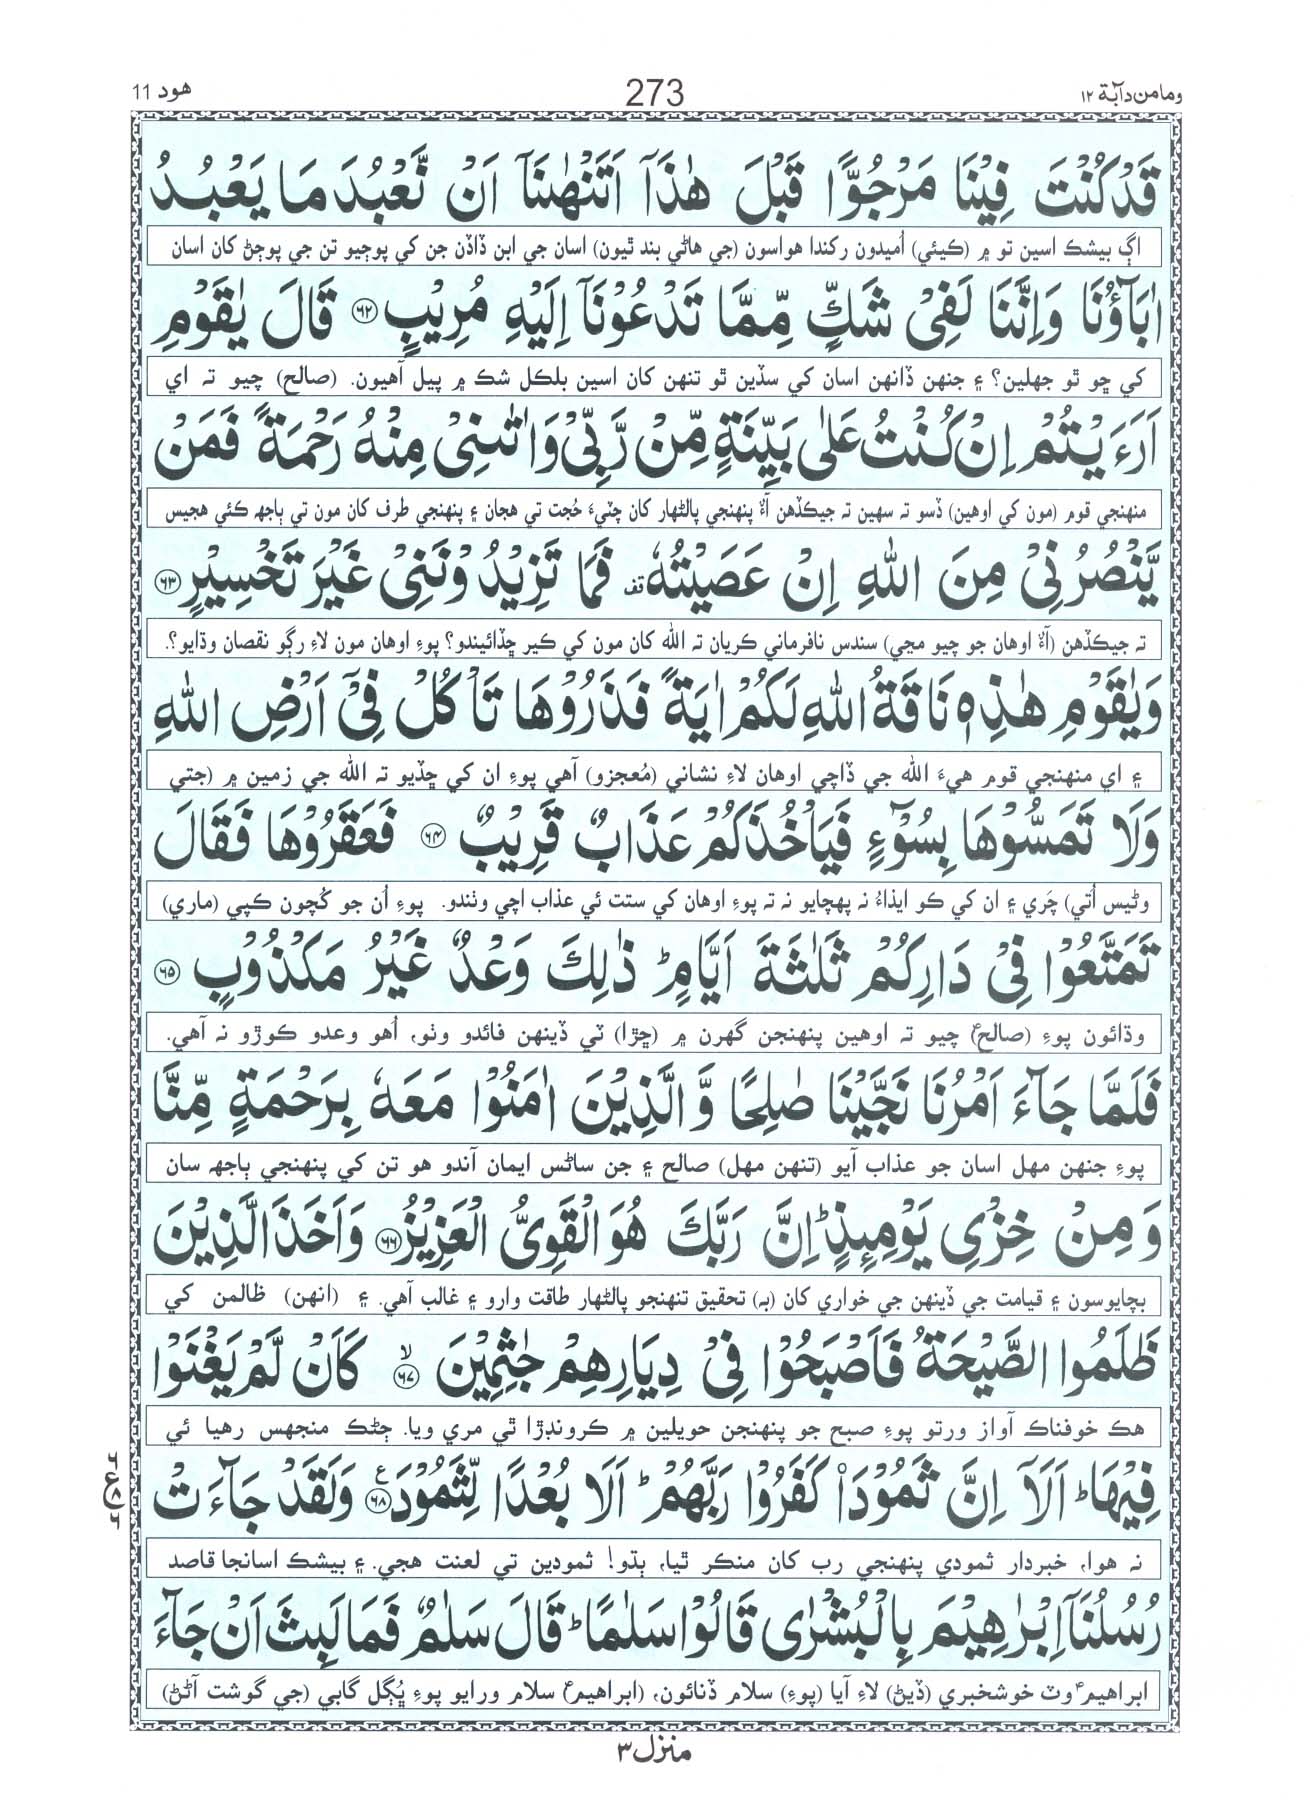 ومامن دآبة ١٢ 273 هود 11
قَدْ كُنْتَ فِيْنَا مَرْجُوًّا قَبْلَ هٰذَاۤ اَتَنْهٰىنَاۤ اَنْ نَّعْبُدَ مَا يَعْبُدُ
اڳ بيشڪ اسين تو ۾ (ڪيئي) اُميدون رکندا هواسون (جي هاڻي بند ٿيون) اسان جي ابن ڏاڏن جن کي پوڄيو تن جي پوڄڻ کان اسان
اٰبَآؤُنَا وَاِنَّنَا لَفِيْ شَكٍّ مِّمَّا تَدْعُوْنَاۤ اِلَيْهِ مُرِيْبٍ ﴿۶۲﴾ قَالَ يٰقَوْمِ
کي ڇو ٿو جهلين؟ ۽ جنهن ڏانهن اسان کي سڏين ٿو تنهن کان اسين بلڪل شڪ ۾ پيل آهيون. (صالح) چيو ته اي
اَرَءَيْتُمْ اِنْ كُنْتُ عَلٰى بَيِّنَةٍ مِّنْ رَّبِّيْ وَاٰتٰىنِيْ مِنْهُ رَحْمَةً فَمَنْ
منهنجي قوم (مون کي اوهين) ڏسو ته سهين ته جيڪڏهن آءٌ پنهنجي پالڻهار کان چٽيءَ حُجت تي هجان ۽ پنهنجي طرف کان مون تي ٻاجهه ڪئي هجيس
يَّنْصُرُنِيْ مِنَ اللّٰهِ اِنْ عَصَيْتُهٗ قف فَمَا تَزِيْدُوْنَنِيْ غَيْرَ تَخْسِيْرٍ ﴿۶۳﴾
ته جيڪڏهن (آءٌ اوهان جو چيو مڃي) سندس نافرماني ڪريان ته الله کان مون کي ڪير ڇڏائيندو؟ پوءِ اوهان مون لاءِ رڳو نقصان وڌايو؟.
وَيٰقَوْمِ هٰذِهٖ نَاقَةُ اللّٰهِ لَكُمْ اٰيَةً فَذَرُوْهَا تَاْكُلْ فِيْۤ اَرْضِ اللّٰهِ
۽ اي منهنجي قوم هيءَ الله جي ڏاچي اوهان لاءِ نشاني (مُعجزو) آهي پوءِ ان کي ڇڏيو ته الله جي زمين ۾ (جتي
وَلَا تَمَسُّوْهَا بِسُوْٓءٍ فَيَاْخُذَكُمْ عَذَابٌ قَرِيْبٌ ﴿۶۴﴾ فَعَقَرُوْهَا فَقَالَ
وڻيس اُتي) چَري ۽ ان کي ڪو ايذاءُ نه پهچايو نه ته پوءِ اوهان کي ستت ئي عذاب اچي وٺندو. پوءِ اُن جو کُچون ڪپي (ماري)
تَمَتَّعُوْا فِيْ دَارِكُمْ ثَلٰثَةَ اَيَّامٍ ؕ ذٰلِكَ وَعْدٌ غَيْرُ مَكْذُوْبٍ ﴿۶۵﴾
وڌائون پوءِ (صالحؑ) چيو ته اوهين پنهنجن گهرن ۾ (ڇڙا) ٽي ڏينهن فائدو وٺو، اُهو وعدو ڪوڙو نه آهي.
فَلَمَّا جَآءَ اَمْرُنَا نَجَّيْنَا صٰلِحًا وَّالَّذِيْنَ اٰمَنُوْا مَعَهٗ بِرَحْمَةٍ مِّنَّا
پوءِ جنهن مهل اسان جو عذاب آيو (تنهن مهل) صالح ۽ جن ساڻس ايمان آندو هو تن کي پنهنجي ٻاجهه سان
وَمِنْ خِزْيِ يَوْمِئِذٍ ؕ اِنَّ رَبَّكَ هُوَ الْقَوِيُّ الْعَزِيْزُ ﴿۶۶﴾ وَاَخَذَ الَّذِيْنَ
بچايوسون ۽ قيامت جي ڏينهن جي خواري کان (به) تحقيق تنهنجو پالڻهار طاقت وارو ۽ غالب آهي. ۽ (انهن) ظالمن کي
ظَلَمُوا الصَّيْحَةُ فَاَصْبَحُوْا فِيْ دِيَارِهِمْ جٰثِمِيْنَ ﴿۶۷﴾ لا كَاَنْ لَّمْ يَغْنَوْا
هڪ خوفناڪ آواز ورتو پوءِ صبح جو پنهنجن حويلين ۾ ڪرونڊڙا ٿي مري ويا. ڄڻڪ منجهس رهيا ئي
فِيْهَا ؕ اَلَاۤ اِنَّ ثَمُوْدَا۟ كَفَرُوْا رَبَّهُمْ ؕ اَلَا بُعْدًا لِّثَمُوْدَ ﴿۶۸﴾ ع وَلَقَدْ جَآءَتْ
نه هوا، خبردار ثمودي پنهنجي رب کان منڪر ٿيا، ٻڌو! ثمودين تي لعنت هجي. ۽ بيشڪ اسانجا قاصد
رُسُلُنَاۤ اِبْرٰهِيْمَ بِالْبُشْرٰى قَالُوْا سَلٰمًا ؕ قَالَ سَلٰمٌ فَمَا لَبِثَ اَنْ جَآءَ
ابراهيمؑ وٽ خوشخبري (ڏيڻ) لاءِ آيا (پوءِ) سلام ڏنائون، (ابراهيمؑ سلام ورايو پوءِ ڀُڳل گابي (جي گوشت آڻڻ)
منزل ٣